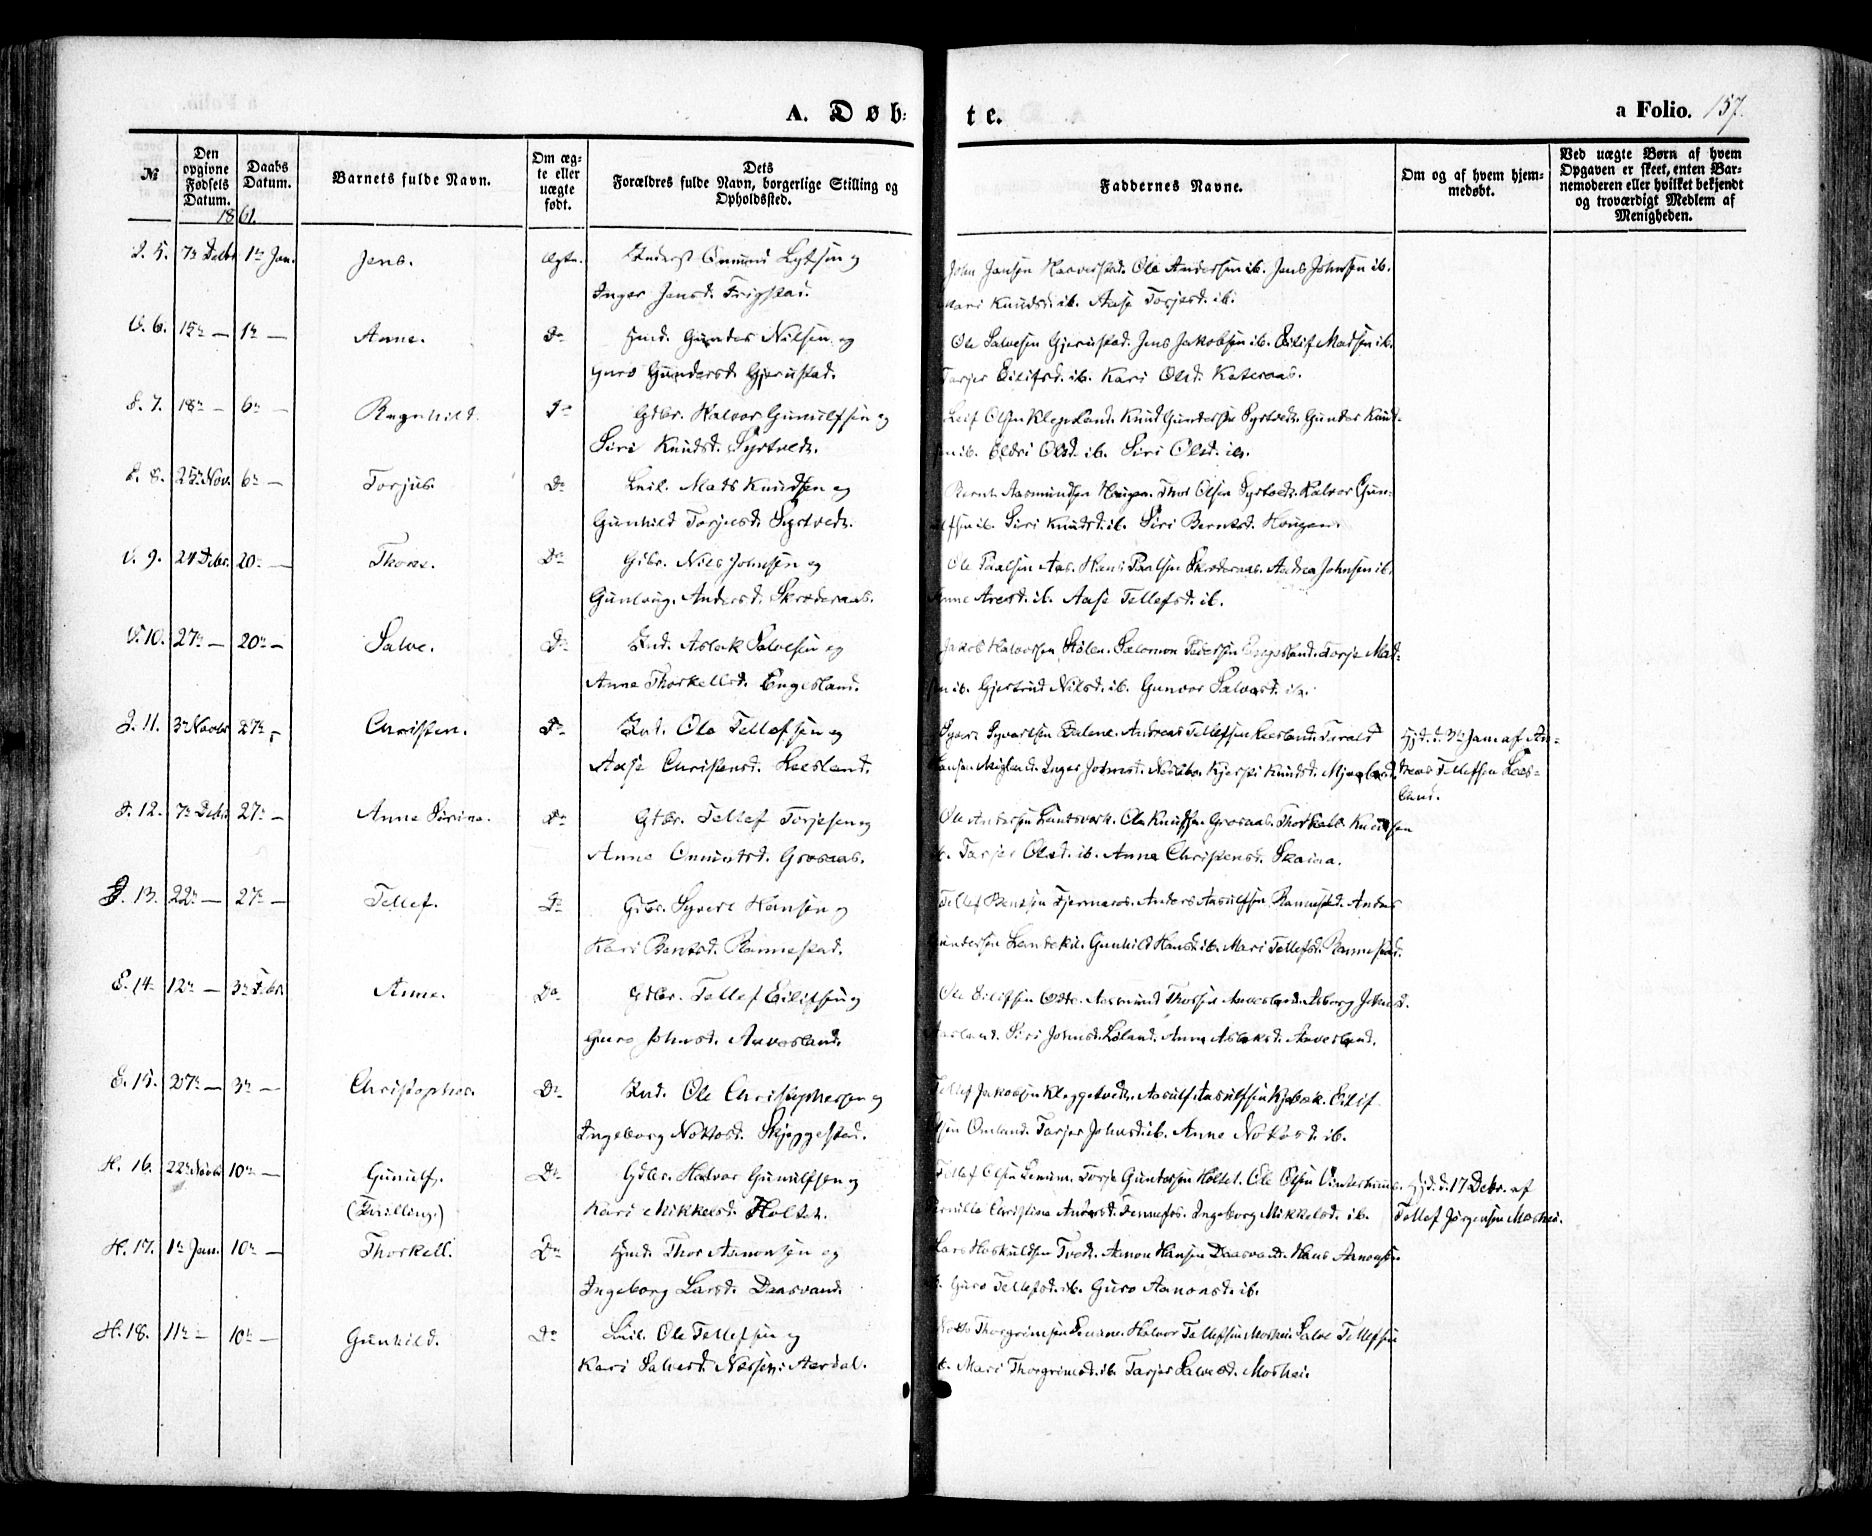 A. Døb-
te.
a Folio. 157.
№
Den opgivne Fødsels Datum.
Daabs Datum.
Barnets fulde Navn.
Om ægte eller uægte født.
Dets Forældres fulde Navn, borgerlige Stilling og Opholdssted.
Faddernes Navne.
Om og af hvem hjemmedøbt.
Ved uægte Børn af hvem Opgaven er skeet, enten Barnemoderen eller hvilket bekjendt og troværdigt Medlem af Menigheden.
1861.
5. 7de Debr 1te Jan. Jens. ægte. Anders Onund og
Inger Jensd. Trigstad.
John Jensen Ole Andersen ib. Jens Johnsen ib.
Knudsd. ib. Aase Torjesd. ib.
6. 15de — 1te — Anne. Do Gunder Nilsen og
Guro Gundersd. Gjerustad.
Ole Salvesen Gjerustad. Jens Jakobsen ib. Eilif Madsen ib.
Tarjer Eilifsd. ib. Kari Olsd. Kateraas.
7. 18de — 6te — Ragnhild. Do Gdbr. Halvor Gunulfsen og
Siri Knudsd. Syrtveit.
Leif Olsen Klepsland. Knud Gundersen Syrtveit. Gunder Knud-
ib. Eldri Olsd. ib. Siri Olsd. ib.
8. 25de Nov. 6te — Torjus. Do Leil. Mads Knudsen og
Gunhild Torjusd. Syrtveit.
Bernt Aasmundsen Haugen. Thor Olsen Syrtveit. Halvor Gun-
ulfsen ib. Siri Knudsd. ib. Siri Berntsd. Haugen.
9. 24 Debr. 20de — Thone. Do Gdbr. Nils Johnsen og
Gunlaug Andersd. Skraderaas.
Ole Paalsen Aas. Hans Paalsen Skraderaas. Andrea Johnsen ib.
Anne Aresd. ib. Aase Tellefsd. ib.
10. 27de — 20de — Salve. Do Ind. Aslak Salvesen og
Anne Thorkellsd. Engesland.
Jakob Halvorsen Stølen. Salomon Pedersen Engesland. Torje Mad-
sen ib. Gjertrud Nilsd. ib. Gunvor Salvesd. ib.
11. 3de Novbr 27de — Christen. Do Ind. Ole Tellefsen og
Aase Christensd. Keesland.
Syvert Syvertsen Andreas Tellefsen Keesland. Tarald
Hansen Inger Johnsd. Kjersti Knudsd.
Hjd. d. 3de Jan. af An-
dreas Tellefsen Kees-
land.
12. 7de Debr 27de — Anne Sirine. Do Gdbr. Tellef Torjesen og
Anne Onundsd. Grosaas.
Ole Andersen Landsverk. Ole Knudsen Grosaas. Thorkell Knudsen
ib. Tarjer Olsd. ib. Anne Christensd. Skaiaa.
13. 22de — 27de — Tellef. Do Gdbr. Syvert Hansen og
Kari Bentsd. Rannestad.
Tellef Bentsen Fjermeros. Anders Aasulfsen Rannestad. Anders
Gundersen Gunhild Hansd. ib. Mari Tellefsd. Rannestad.
14. 12te — 3de Febr. Anne. Do Gdbr. Tellef Eilifsen og
Guro Johnsd. Aavesland.
Ole Eilifsen Odde. Aasmund Thorsen Aavesland. Asborg Johnsd.
Siri Johnsd. Løland. Anne Aslaksd. Aavesland.
15. 27de — 3de — Christopher. Do Ind. Ole Christophersen og
Ingeborg Nottosd. Skjeggestad.
Tellef Jakobsen Kleggetveit. Aasulf Aasulfsen Kjebæk. Eilif
Omland. Tarjer Johnsd. ib. Anne Nottosd. ib.
H. 16. 22de Novbr 10de — Gunulf.
(Tvilling)
Do Gdbr. Halvor Gunulfsen og
Kari Mikkelsd. Holtet.
Tellef Olsen Torje Gundersen Holtet. Ole Olsen
Pernille Christine Andersd. Fennefos. Ingeborg Mikkelsd. ib.
Hjd. d. 17 Debr. af
Tellef Jørgensen Moshei.
H. 17. 1te Jan. 10de — Thorkell. Do Thor Aanonsen og
Ingeborg Larsd. Daasvand.
Lars Hoskuldsen Tveit. Aanon Hansen Daasvand. Hans Aanonsen
ib. Guro Tellefsd. ib. Guro Aanonsd. ib.
H. 18. 11te — 10de — Gunhild. Do Leil. Ole Tellefsen og
Kari Salvesd. Aardal.
Notto Thorgrimsen Senum. Halvor Tellefsen Moshei. Salve Tellefsen
ib. Mari Thorgrimsd. ib. Tarjer Salvesd. Moshei.